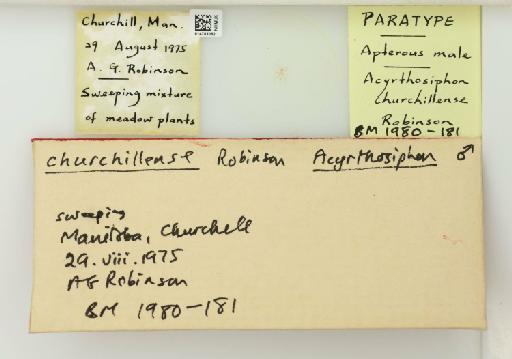 Churchill, Man.
29 August 1975
A. G. Robinson
Sweeping mixture
of meadow plants
PARATYPE
Apterous male
Acyrthosiphon
churchillense
Robinson
BM 1980-181
churchillense Robinson Acyrthosiphon ♂
sweeping
Manitoba, Churchill
29.viii.1975
AG Robinson
BM 1980-181